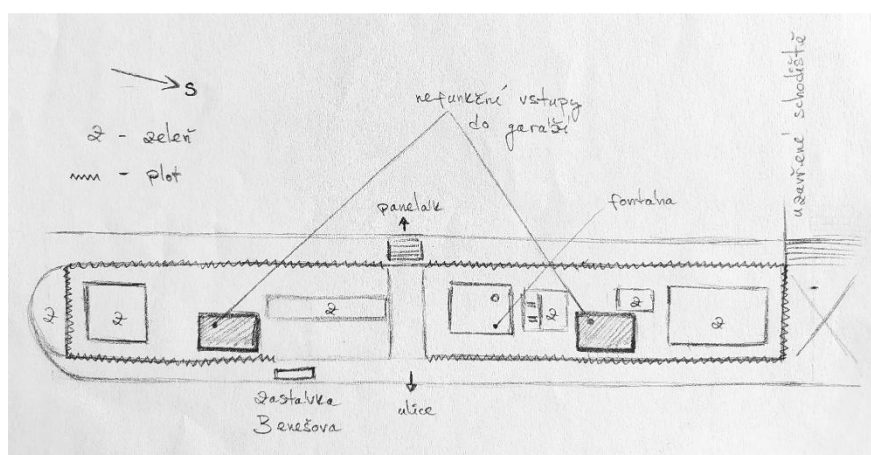 S
z - zeleň
- plot
nefunkční vstupy
do garáží
uzavřené schodiště
panelák
fontána
z
z
z
z
z
z
zastávka
Benešova
ulice